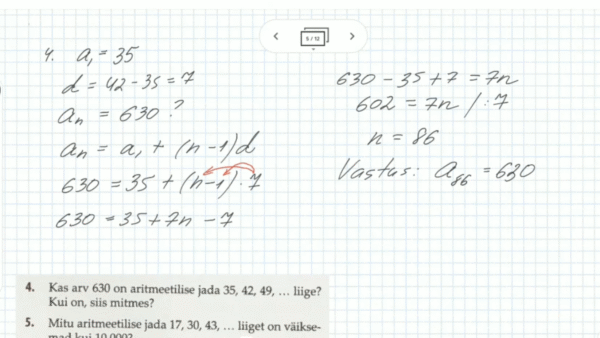 5 / 12
4. a₁ = 35
d = 42 - 35 = 7
aₙ = 630 ?
aₙ = a₁ + (n - 1)d
630 = 35 + (n - 1) · 7
630 = 35 + 7n - 7
630 - 35 + 7 = 7n
602 = 7n / : 7
n = 86
Vastus: a₈₆ = 630
4. Kas arv 630 on aritmeetilise jada 35, 42, 49, ... liige?
Kui on, siis mitmes?
5. Mitu aritmeetilise jada 17, 30, 43, ... liiget on väikse-
mad kui 10 000?